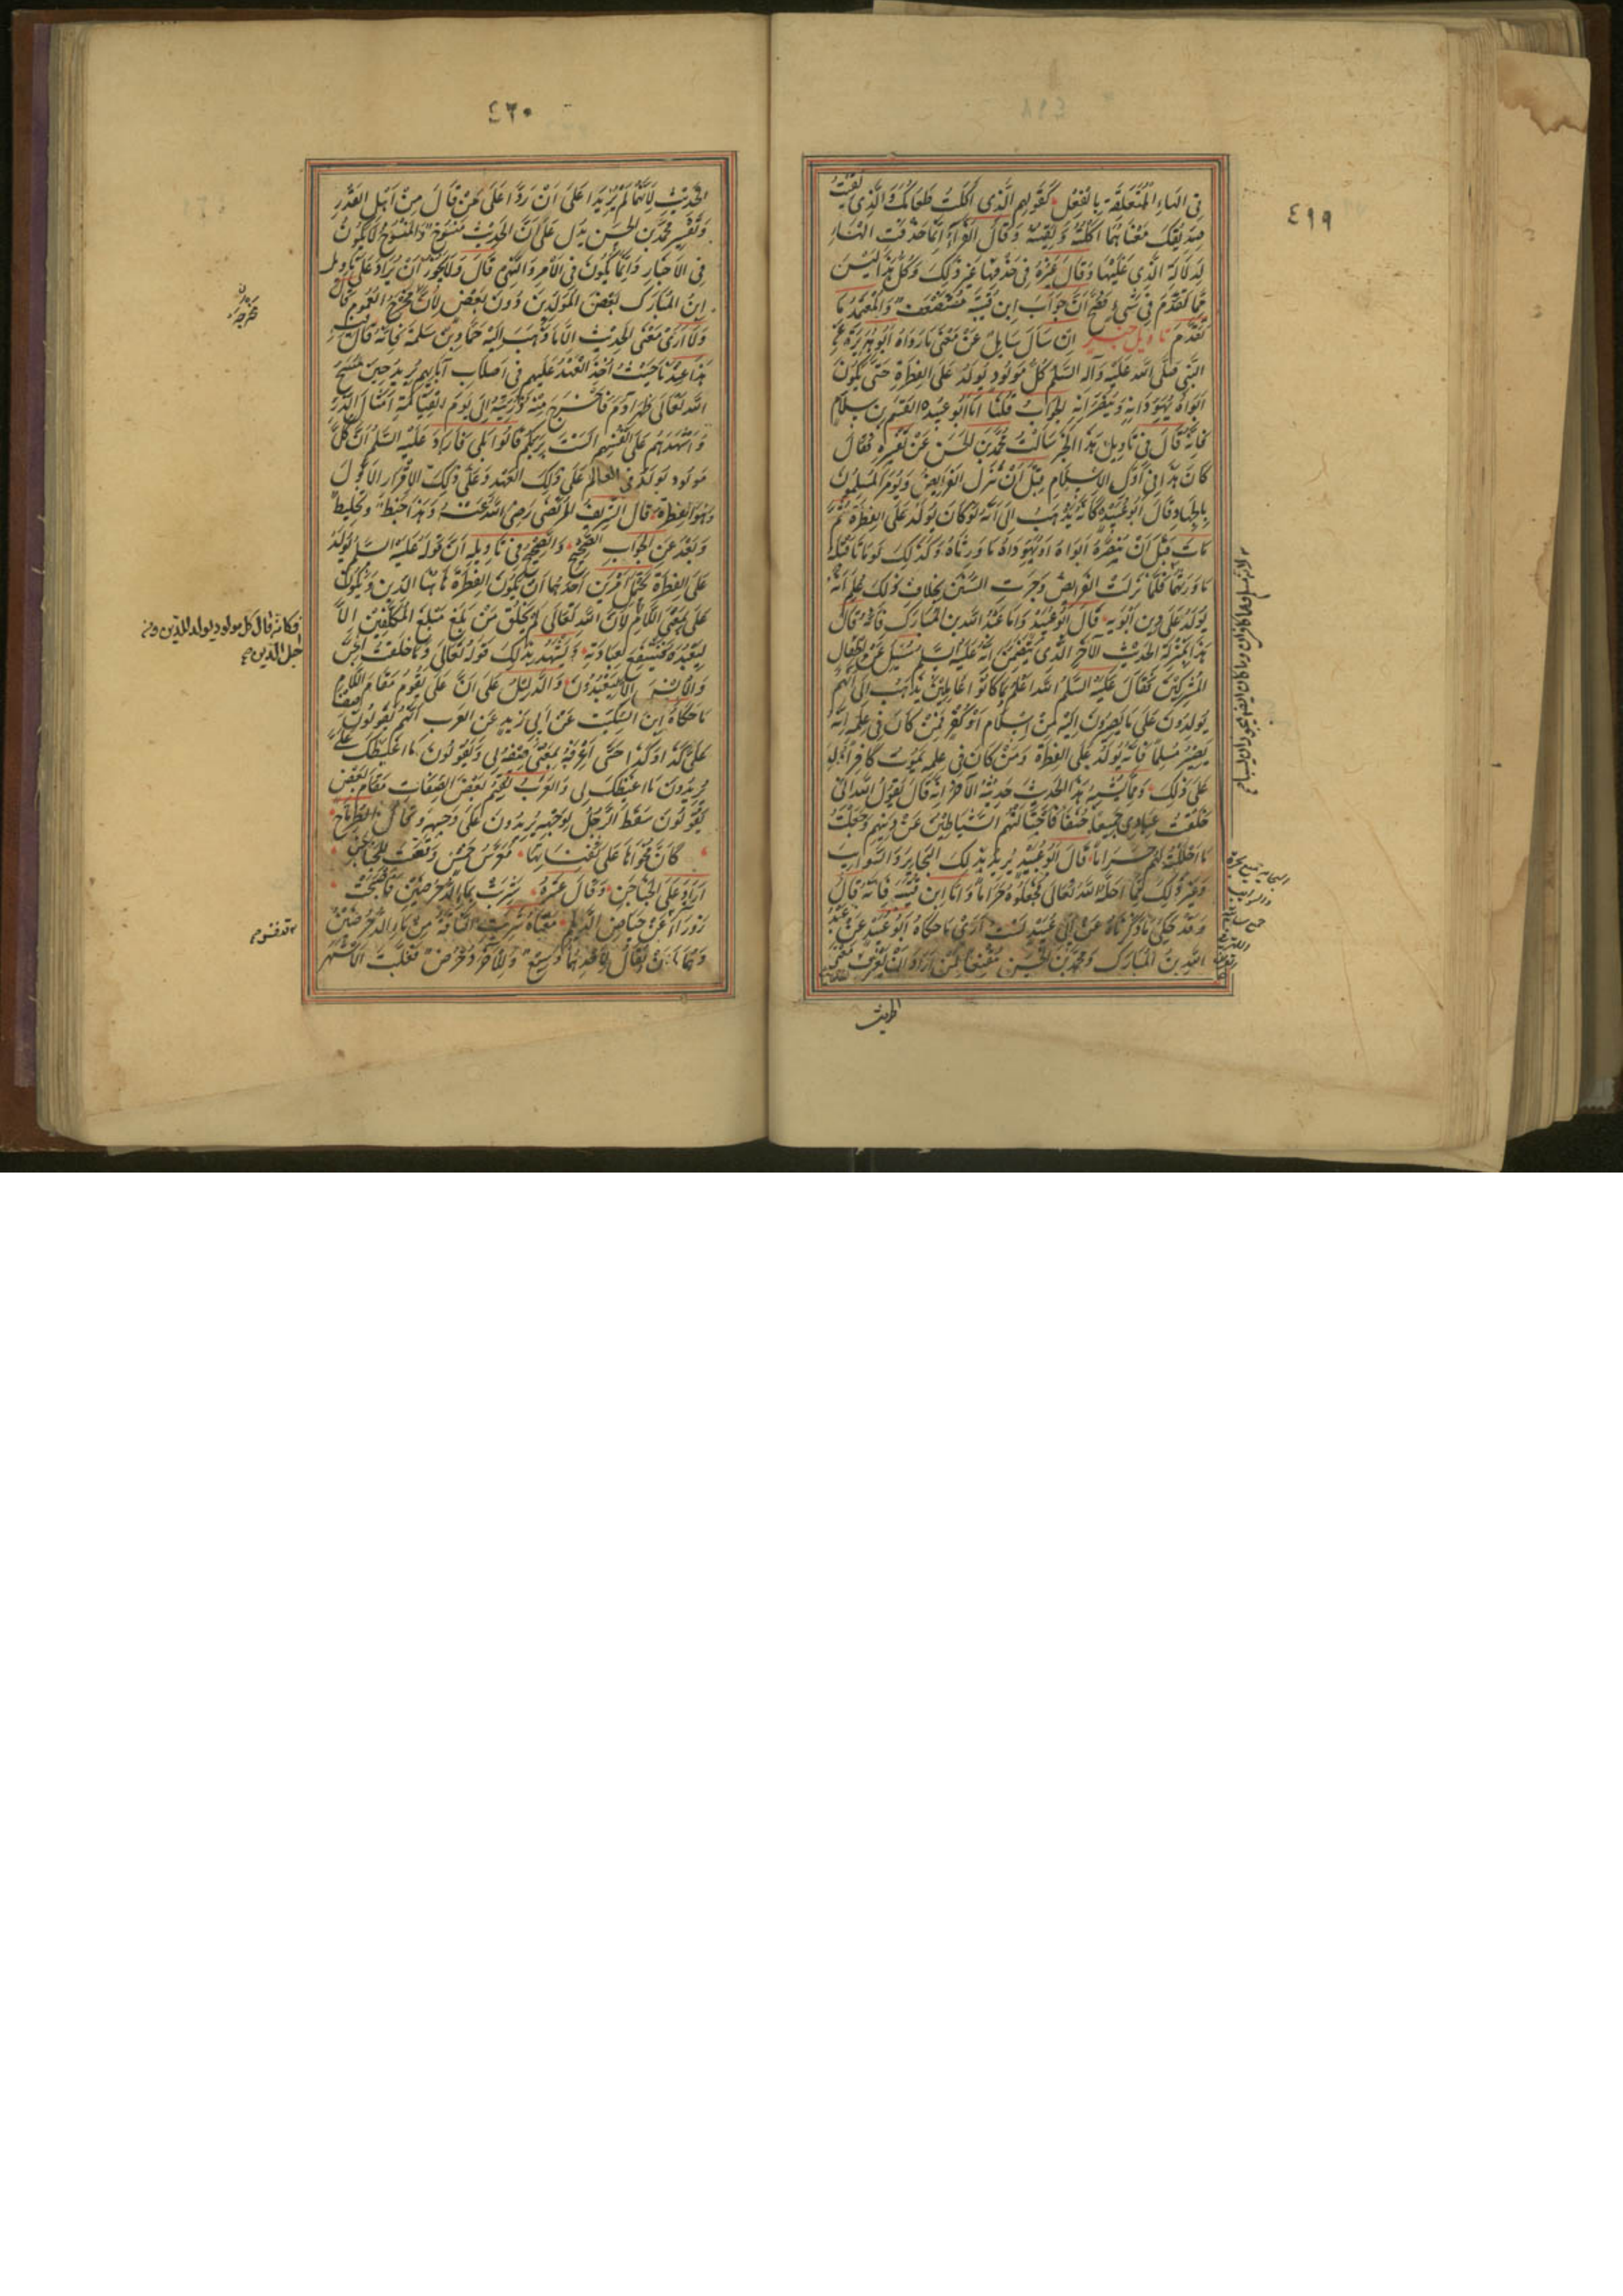 ٤١٩
في الهاء المتعلقة بالفعل كقولهم الذي اكلت طعامك والذي لقيت
صديقك معناهما اكلته ولقيته وقال الفراء انما حذفت الهاء
لدلالة الذي عليها وقال غيره في حذفها غير ذلك وكل هذا ليس
مما تقدم في شيء فصح ان جواب ابن قتيبة مستضعف والمعتمد ما
تقدم تاويل خبر ان سال سايل عن معنى ما رواه ابو هريرة عن
النبي صلى الله عليه وآله السلم كل مولود يولد على الفطرة حتى يكون
ابواه يهودانه وينصرانه الجواب قلنا اما ابو عبيده القسم بن سلام
فانه قال في تاويل هذا الخبر سالت محمد بن الحسن عن تفسيره فقال
كان هذا في اول الاسلام قبل ان تنزل الفرايض ويومر المسلمون
بالجهاد قال ابو عبيده كانه يذهب الى انه لو كان يولد على الفطرة ثم
مات قبل ان ينصره ابواه او يهوداه ما ورثاه وكذلك لو ماتا قبله
ما ورثهما فلما نزلت الفرايض وجرت السنن بخلاف ذلك علم انه
يولد على دين ابويه قال ابو عبيد واما عبد الله بن المبارك فانه قال
هذا بمنزلة الحديث الآخر الذي يتضمن انه عليه السلم سئل عن اطفال
المشركين فقال عليه السلم الله اعلم بما كانوا عاملين يذهب الى انهم
يولدون على ما يصيرون اليه من اسلام او كفر فمن كان في علمه انه
يصير مسلما فانه يولد على الفطرة ومن كان في علمه يموت كافرا ولد
على ذلك ومما يشبه هذا الحديث حديثه الآخر انه قال يقول الله اني
خلقت عبادي جميعا حنفا فاجتالتهم الشياطين عن دينهم وجعلت
ما احللت لهم حراما قال ابو عبيد يريد بذلك البحاير والسوايب
وغير ذلك مما احله الله تعالى فجعلوه حراما واما ابن قتيبه فانه قال
وقد حكى ما ذكرناه عن ابي عبيد لست ارى ما حكاه ابو عبيد عن عبد
الله بن المبارك ومحمد بن الحسن مقنعا لمن اراد ان يعرف معنى
الحديث
٤٢٠
الحديث لانهما لم يزيدا على ان ردا على من قال من اهل القدر
وتفسير محمد بن الحسن يدل على ان الحديث منسوخ والمنسوخ لا يكون
في الاخبار وانما يكون في الامر والنهي قال ولا يجوز ان يراد على تاويل
ابن المبارك بعض المولدين دون بعض لان مخرجه العموم قال
ولا ارى معنى الحديث الا ما ذهب اليه حماد بن سلمة فانه قال فيه
هذا عندنا حيث اخذ العهد عليهم في اصلاب آبائهم يريد حين مسح
الله تعالى ظهر آدم فاخرج منه ذريته الى يوم القيامة امثال الذر
واشهدهم على انفسهم الست بربكم قالوا بلى فاراد عليه السلم ان كل
مولود يولد في العالم على ذلك العهد وعلى ذلك الاقرار الاول
وهو الفطرة قال الشريف المرتضى رضي الله عنه وهذا خبط وتخليط
وبعد عن الجواب الصحيح والصحيح في تاويله ان قوله عليه السلم يولد
على الفطرة يحتمل امرين احدهما ان يكون الفطرة هاهنا الدين ويكون
على بمعنى اللام لان الله تعالى لم يخلق من بلغ مبلغ المكلفين الا
ليعبده فينتفع لعبادته ويشهد بذلك قوله تعالى وما خلقت الجن
والانس الا ليعبدون والدليل على ان على يقوم مقام اللام
ما حكاه ابن السكيت عن ابي زيد عن العرب انهم يقولون صف
علي كذا وكذا حتى اعرفه بمعنى صفه لي ويقولون ما اغيظك علي
يريدون ما اغيظك لي والعرب تقيم بعض الصفات مقام بعض
يقولون سقط الرجل بوجهه يريدون على وجهه وقال الطرماح
كان مخواها على ثفناتها معرس خمس وقعت للجناجن
اراد على الجناجن وقال عنتره شربت بماء الدحرضين فاصبحت
زوراء عن حياض الديلم معناه شربت الناقة من ماء الدحرضين
وهما ماءان يقال لاحدهما وسيع وللآخر دحرض فغلب الاشهر
فكانه قال كل مولود يولد للدين ومن
اجل الدين صح